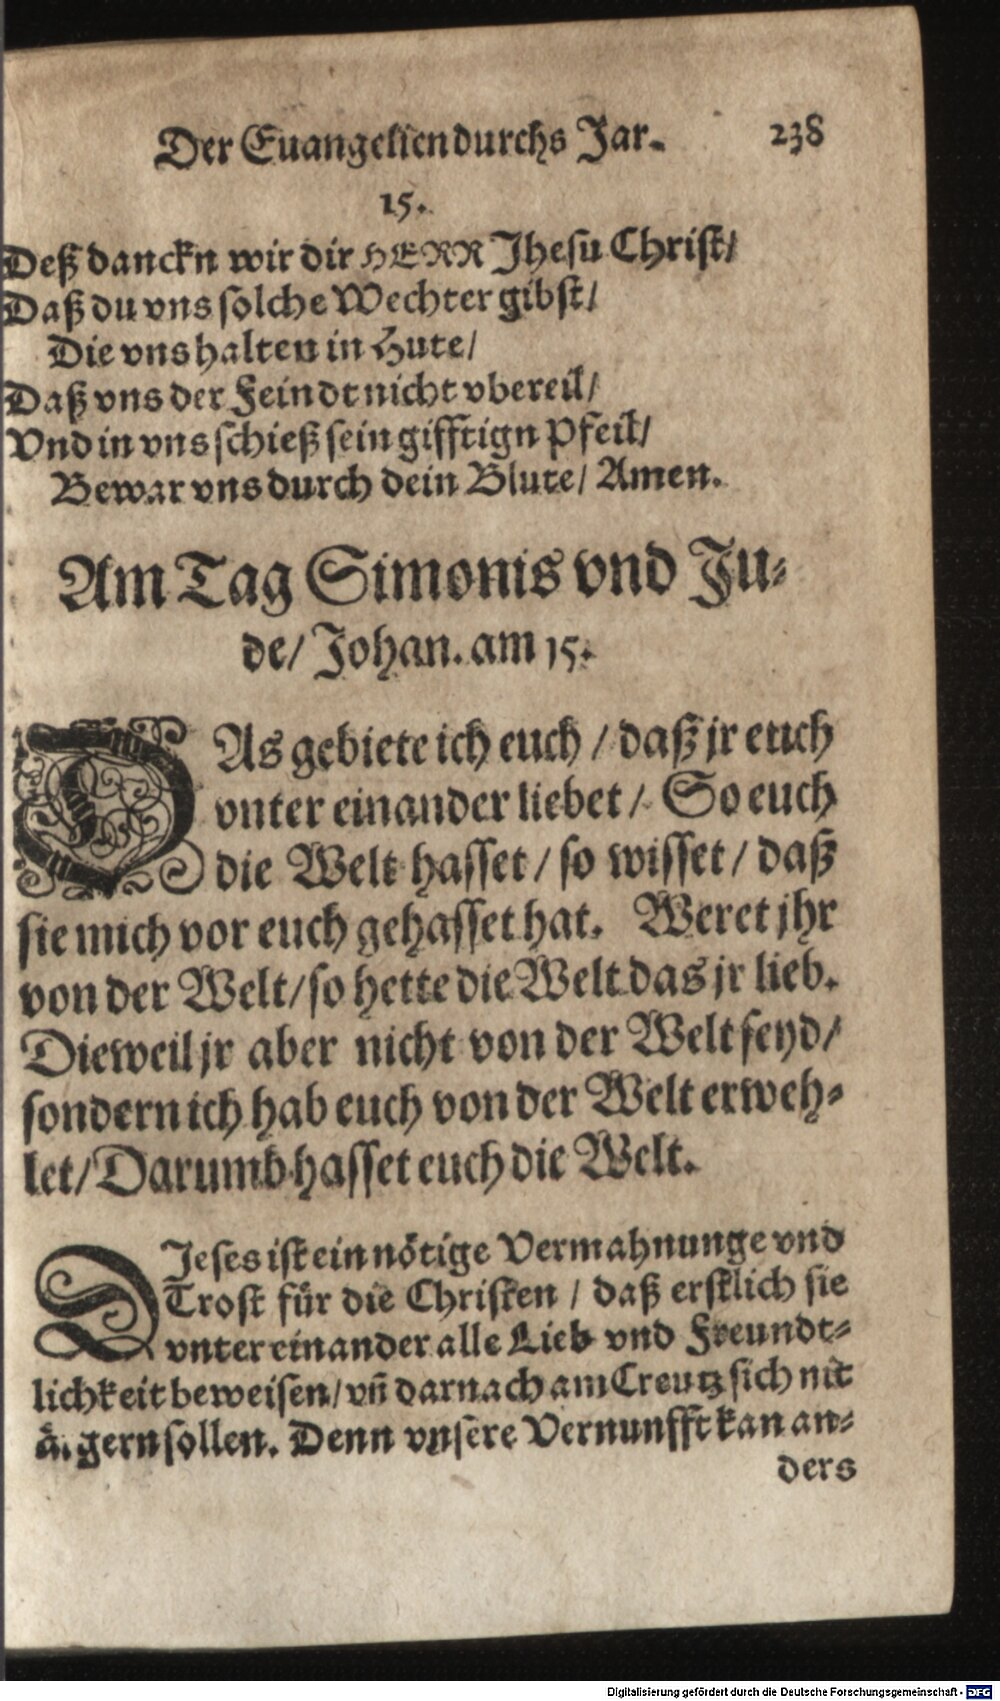 Der Euangelien durchs Jar. 238
15.
Deß danckn wir dir HERR Jhesu Christ/
Daß du vns solche Wechter gibst/
Die vns halten in Hute/
Daß vns der Feindt nicht vbereil/
Vnd in vns schieß sein gifftign Pfeil/
Bewar vns durch dein Blute/ Amen.
Am Tag Simonis vnd Ju-
de/ Johan. am 15.
DAs gebiete ich euch / daß jr euch
vnter einander liebet / So euch
die Welt hasset / so wisset / daß
sie mich vor euch gehasset hat. Weret jhr
von der Welt/ so hette die Welt das jr lieb.
Dieweil jr aber nicht von der Welt seyd/
sondern ich hab euch von der Welt erweh-
let/ Darumb hasset euch die Welt.
DIeses ist ein nötige Vermahnunge vnd
Trost für die Christen / daß erstlich sie
vnter einander alle Lieb vnd Freundt-
lichkeit beweisen/ vñ darnach am Creutz sich nit
ärgern sollen. Denn vnsere Vernunfft kan an-
ders
Digitalisierung gefördert durch die Deutsche Forschungsgemeinschaft - DFG